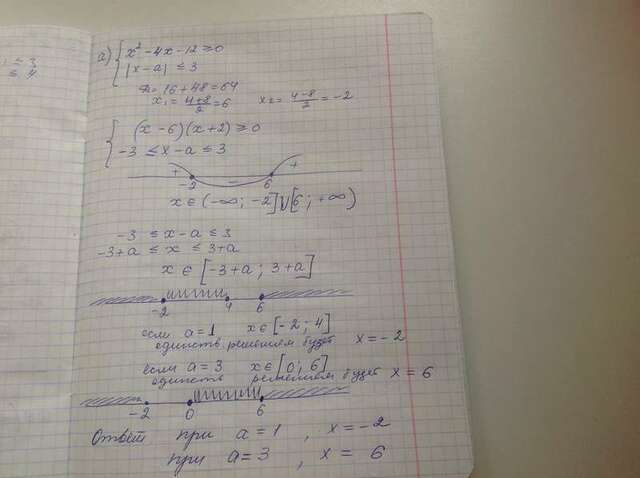 ≤ 3
≤ 4
а) { x² - 4x - 12 ≥ 0
|x - a| ≤ 3
D = 16 + 48 = 64
x₁ = (4+8)/2 = 6 x₂ = (4-8)/2 = -2
{ (x - 6)(x + 2) ≥ 0
-3 ≤ x - a ≤ 3
+ -2 - 6 +
x ∈ (-∞; -2] U [6; +∞)
-3 ≤ x - a ≤ 3
-3+a ≤ x ≤ 3+a
x ∈ [-3+a; 3+a]
-2 4 6
если a = 1 x ∈ [-2; 4]
единств решением будет x = -2
если a = 3 x ∈ [0; 6]
единств решением будет x = 6
-2 0 6
Ответ при a = 1, x = -2
при a = 3, x = 6